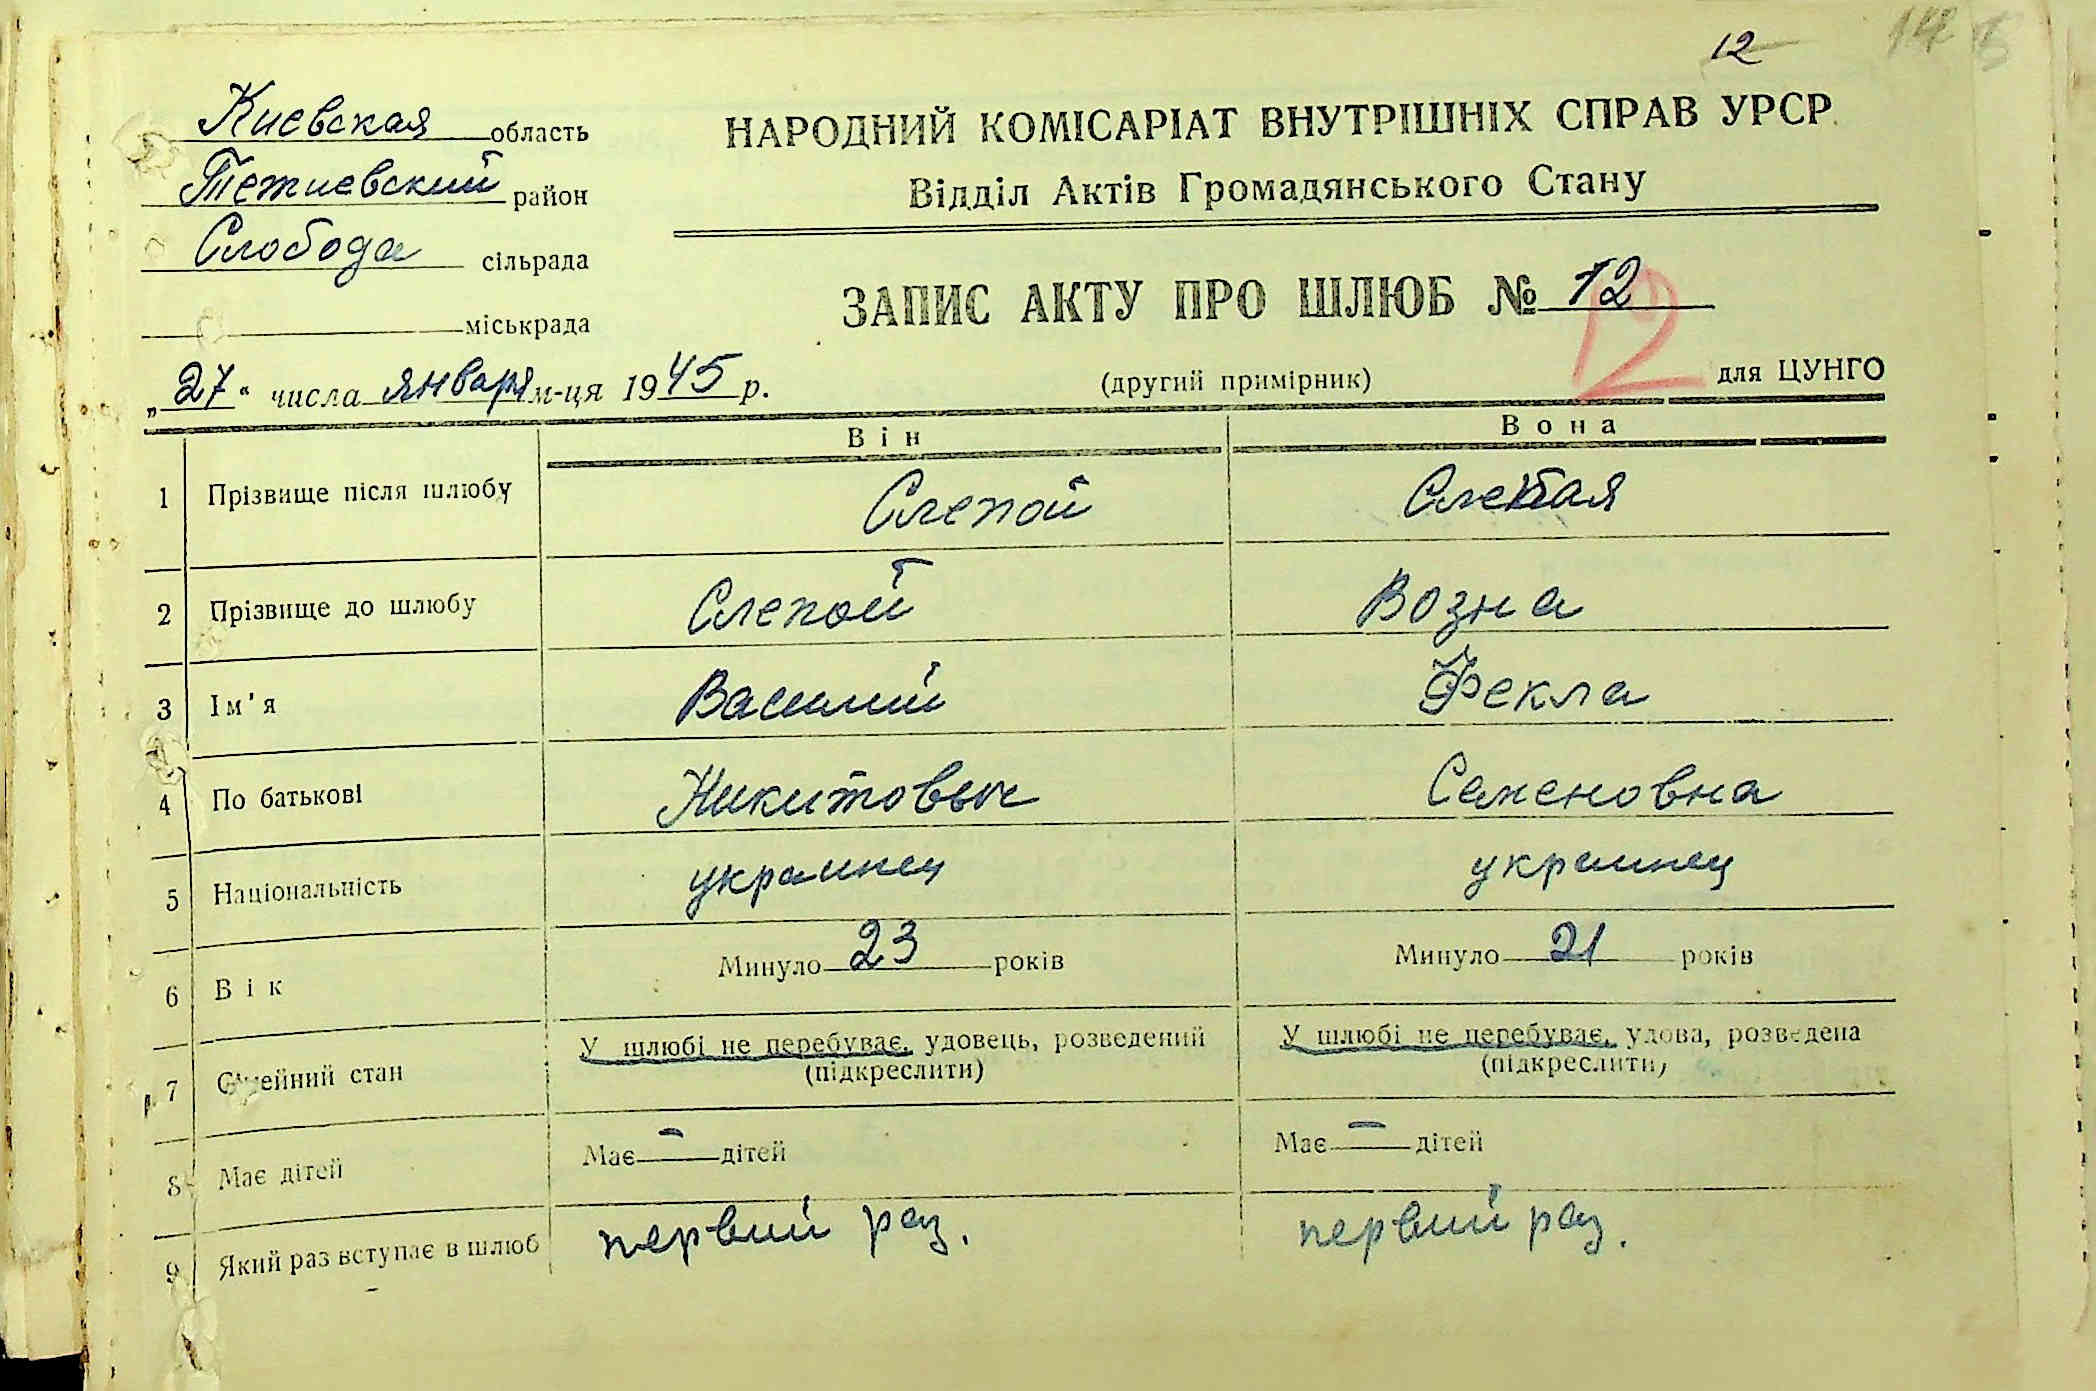 12
Киевская область
Тетиевский район
Слобода сільрада
міськрада
НАРОДНИЙ КОМІСАРІАТ ВНУТРІШНІХ СПРАВ УРСР
Відділ Актів Громадянського Стану
ЗАПИС АКТУ ПРО ШЛЮБ № 12
12
„27“ числа января м-ця 1945 р.
(другий примірник)
для ЦУНГО
Він Вона
1 Прізвище після шлюбу Слепой Слепая
2 Прізвище до шлюбу Слепой Возна
3 Ім'я Василий Фекла
4 По батькові Никитович Семеновна
5 Національність украинец украинец
6 Вік Минуло 23 років Минуло 21 років
7 Сімейний стан У шлюбі не перебуває, удовець, розведений У шлюбі не перебуває, удова, розведена
(підкреслити) (підкреслити)
8 Має дітей Має — дітей Має — дітей
9 Який раз вступає в шлюб первий раз. первий раз.